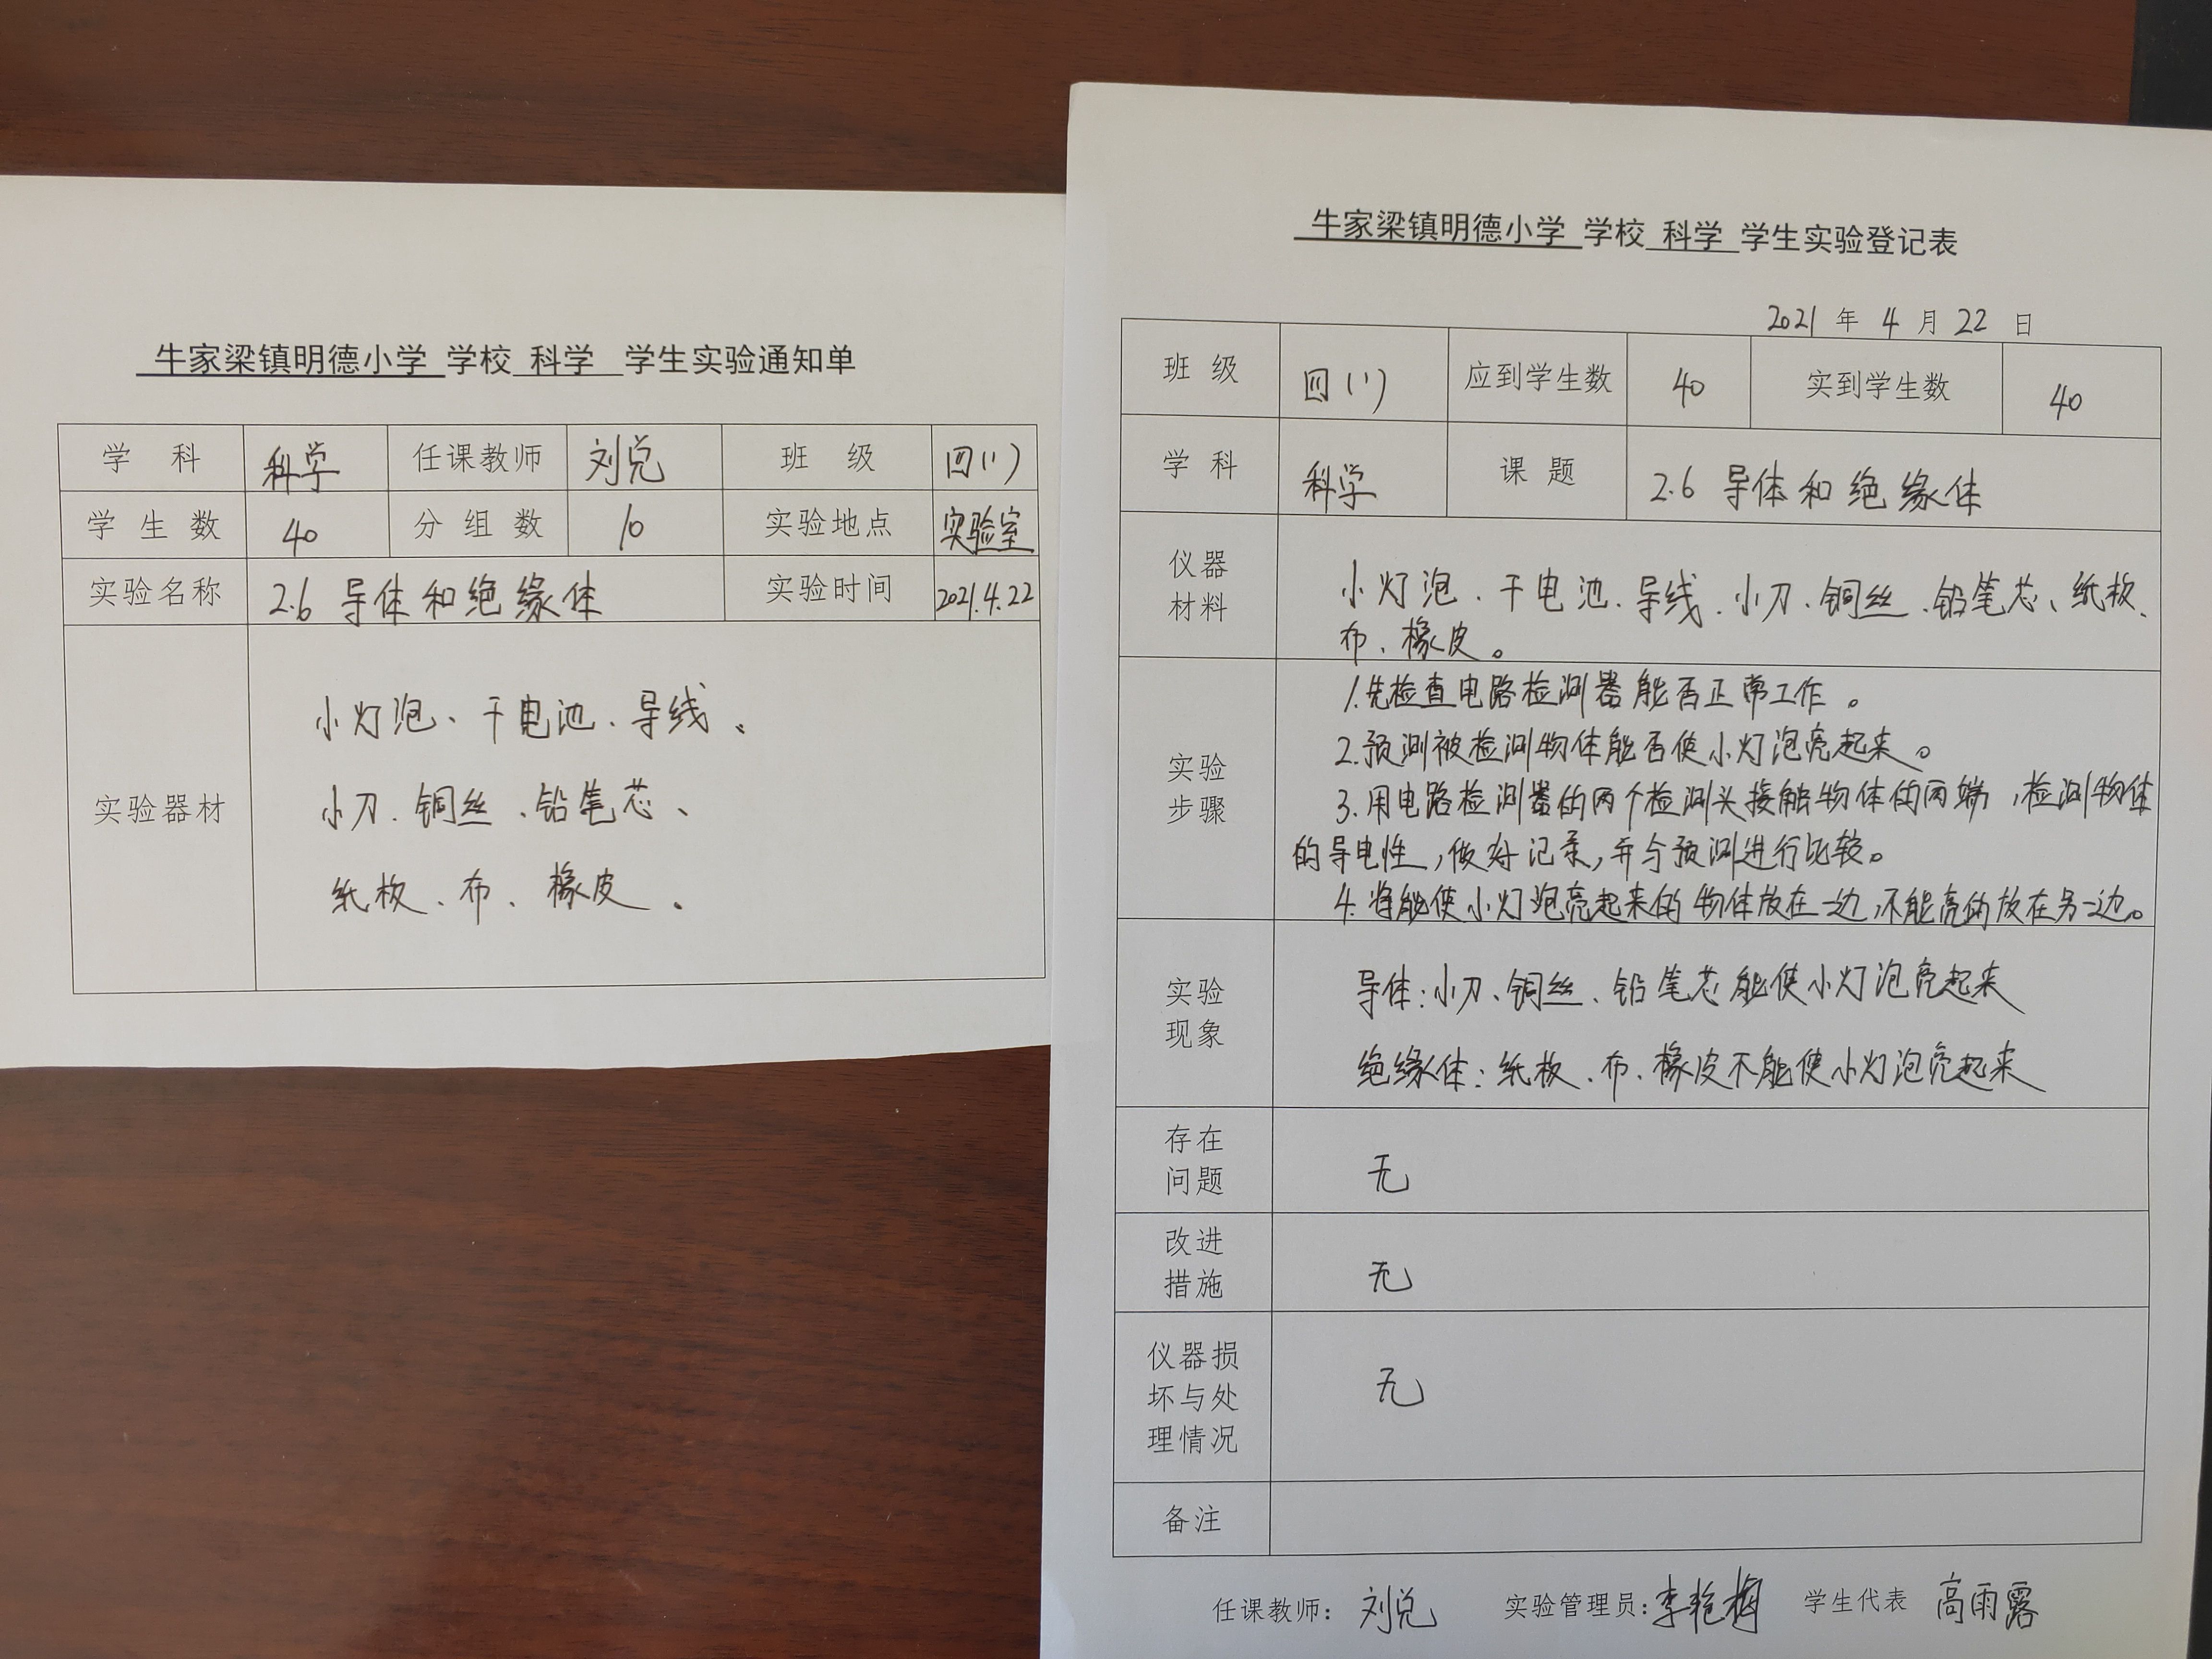 牛家梁镇明德小学 学校 科学 学生实验通知单
学 科 科学 任课教师 刘兑 班 级 四(1)
学 生 数 40 分 组 数 10 实验地点 实验室
实验名称 2.6 导体和绝缘体 实验时间 2021.4.22
实验器材
小灯泡、干电池、导线、
小刀、铜丝、铅笔芯、
纸板、布、橡皮。
牛家梁镇明德小学 学校 科学 学生实验登记表
2021 年 4 月 22 日
班 级 四(1) 应到学生数 40 实到学生数 40
学 科 科学 课 题 2.6 导体和绝缘体
仪器
材料
小灯泡、干电池、导线、小刀、铜丝、铅笔芯、纸板、
布、橡皮。
实验
步骤
1.先检查电路检测器能否正常工作。
2.预测被检测物体能否使小灯泡亮起来。
3.用电路检测器的两个检测头接触物体的两端,检测物体
的导电性,做好记录,并与预测进行比较。
4.将能使小灯泡亮起来的物体放在一边,不能亮的放在另一边。
实验
现象
导体:小刀、铜丝、铅笔芯能使小灯泡亮起来
绝缘体:纸板、布、橡皮不能使小灯泡亮起来
存在
问题
无
改进
措施
无
仪器损
坏与处
理情况
无
备注
任课教师: 刘兑 实验管理员:李艳梅 学生代表 高雨露